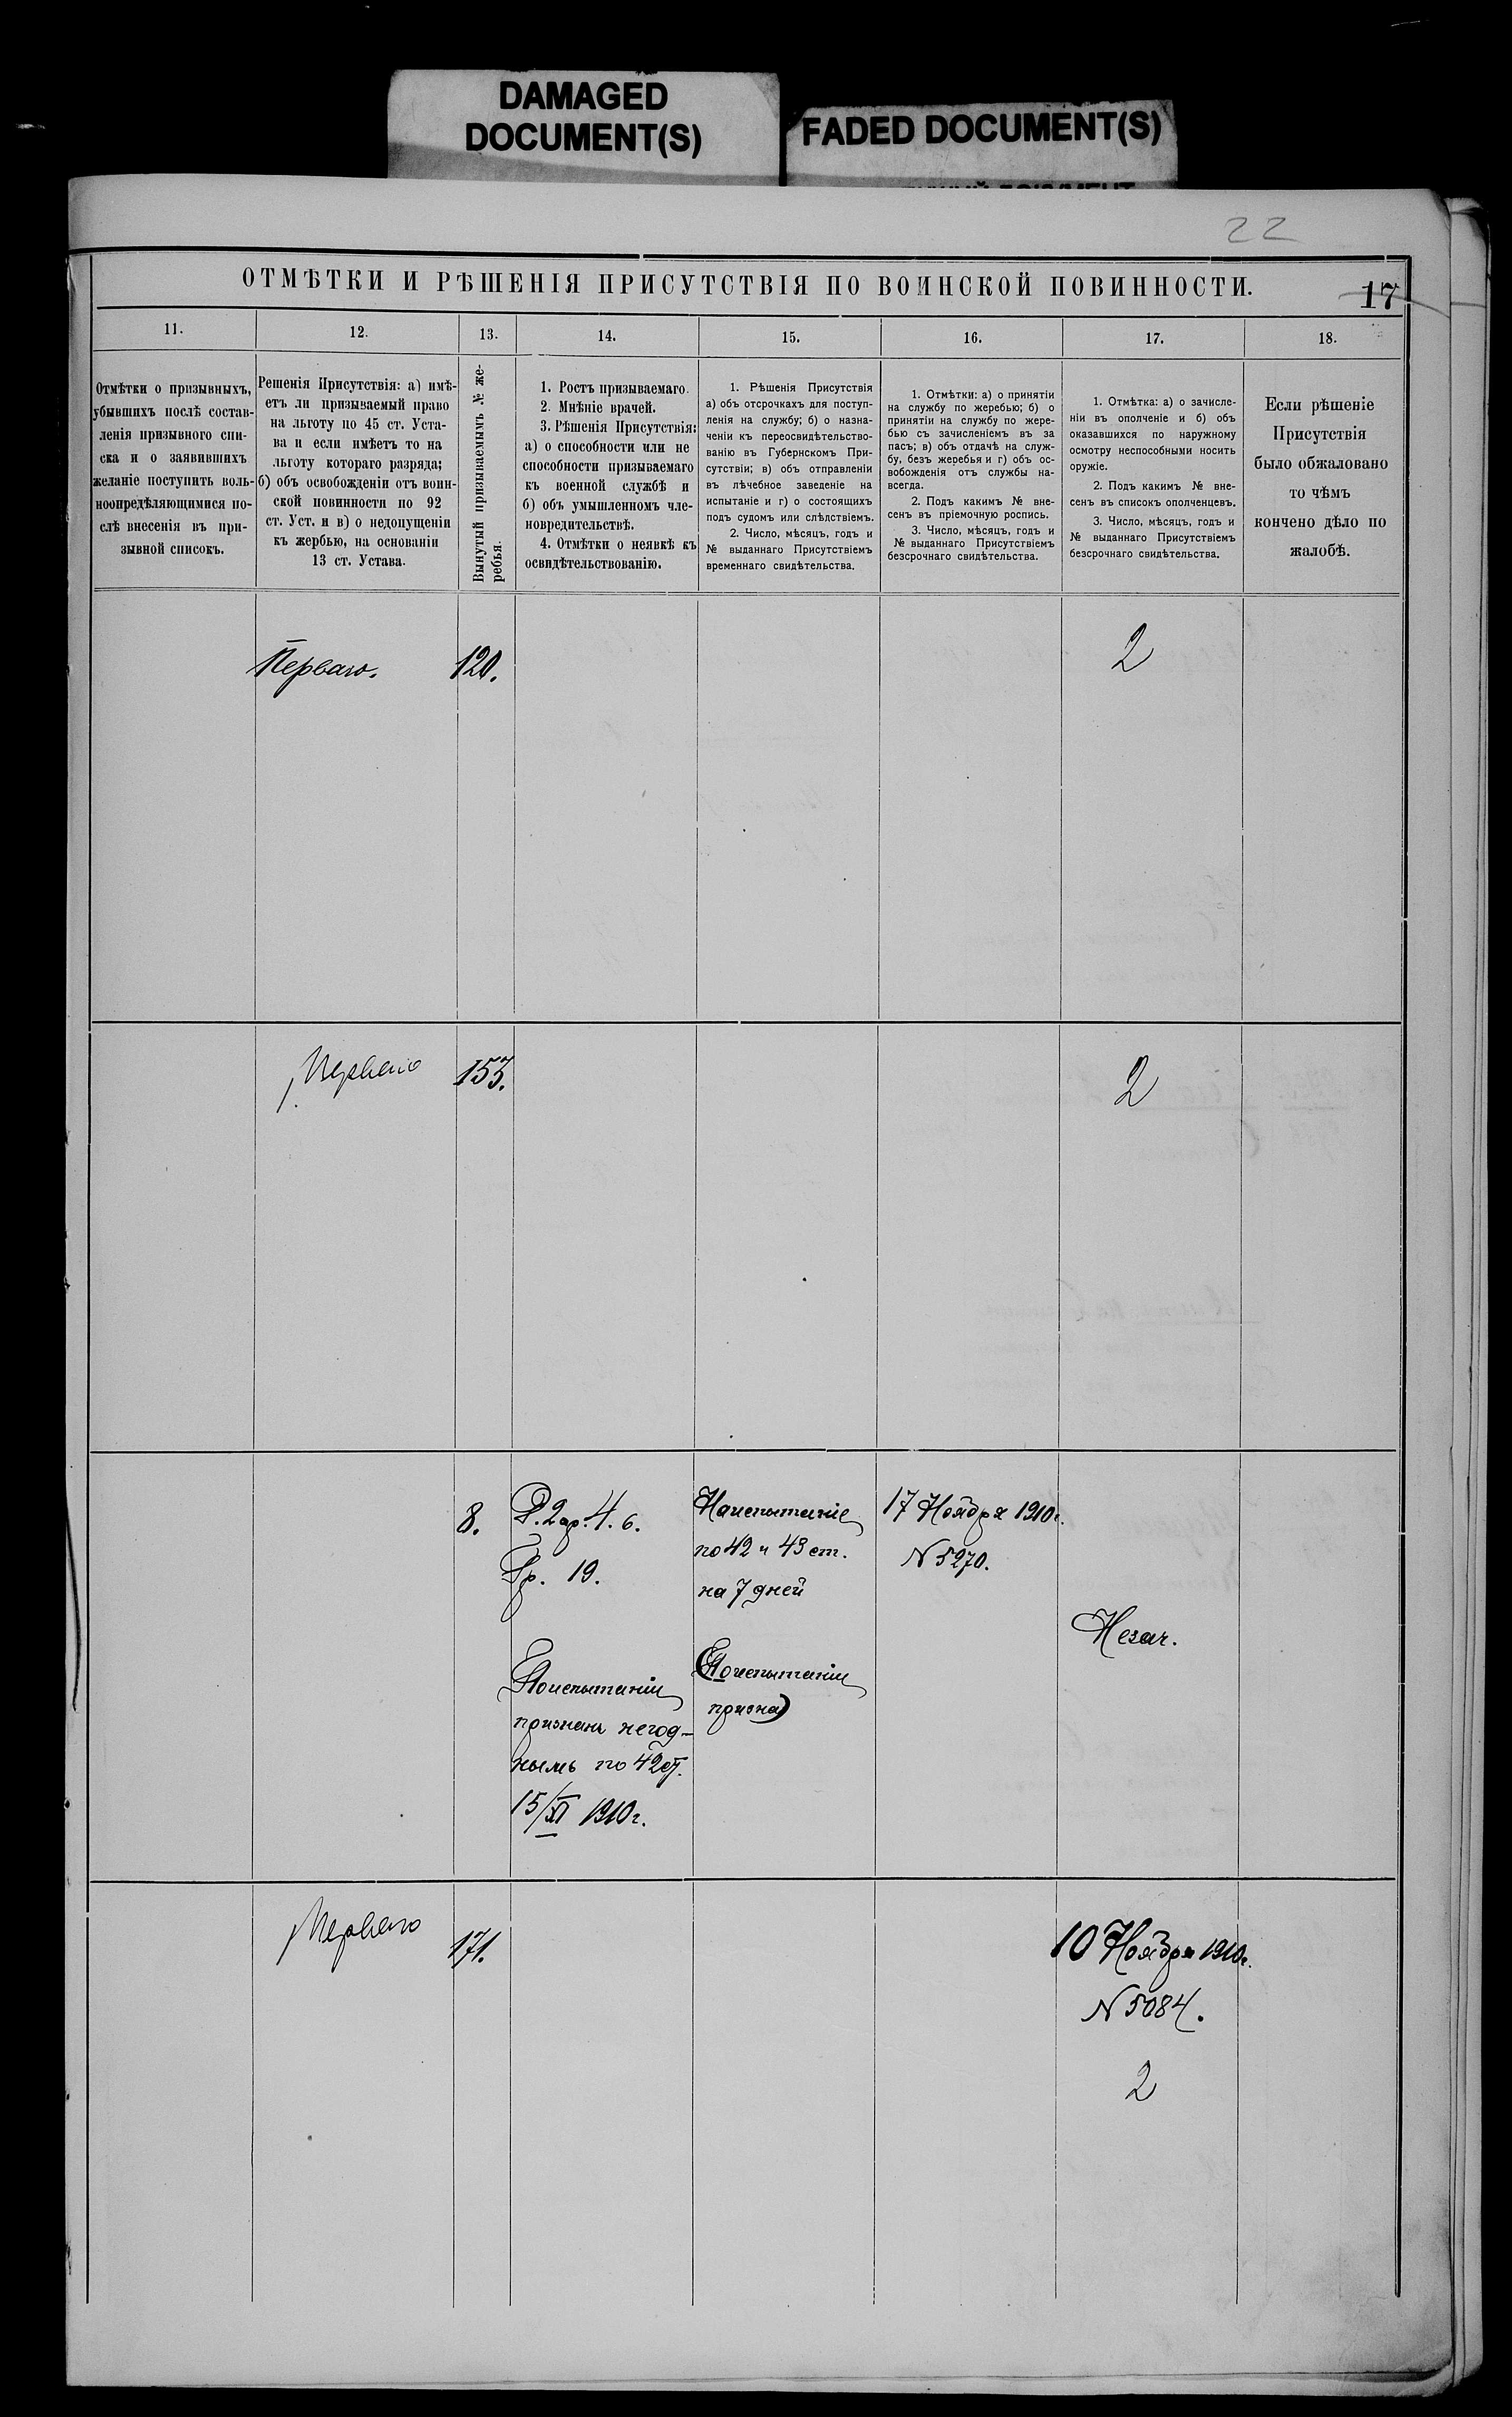 DAMAGED
DOCUMENT(S)
FADED DOCUMENT(S)
22
ОТМѢТКИ И РѢШЕНІЯ ПРИСУТСТВІЯ ПО ВОИНСКОЙ ПОВИННОСТИ.
17
11.
12.
13.
14.
15.
16.
17.
18.
Отмѣтки о призывныхъ,
убывшихъ послѣ состав-
ленія призывного спи-
ска и о заявившихъ
желаніе поступить воль-
ноопредѣляющимися по-
слѣ внесенія въ при-
зывной списокъ.
Решенія Присутствія: а) имѣ-
етъ ли призываемый право
на льготу по 45 ст. Уста-
ва и если имѣетъ то на
льготу котораго разряда;
б) объ освобожденіи отъ воин-
ской повинности по 92
ст. Уст. и в) о недопущеніи
къ жербью, на основаніи
13 ст. Устава.
Вынутый призываемымъ № же-
ребья.
1. Ростъ призываемаго.
2. Мнѣніе врачей.
3. Рѣшенія Присутствія:
а) о способности или не
способности призываемаго
къ военной службѣ и
б) объ умышленномъ чле-
новредительствѣ.
4. Отмѣтки о неявкѣ къ
освидѣтельствованію.
1. Рѣшенія Присутствія
а) объ отсрочкахъ для поступ-
ленія на службу; б) о назна-
ченіи къ переосвидѣтельство-
ванію въ Губернскомъ При-
сутствіи; в) объ отправленіи
въ лѣчебное заведеніе на
испытаніе и г) о состоящихъ
подъ судомъ или слѣдствіемъ.
2. Число, мѣсяцъ, годъ и
№ выданнаго Присутствіемъ
временнаго свидѣтельства.
1. Отмѣтки: а) о принятіи
на службу по жеребью; б) о
принятіи на службу по жере-
бью съ зачисленіемъ въ за
пасъ; в) объ отдачѣ на служ-
бу, безъ жеребья и г) объ ос-
вобожденія отъ службы на-
всегда.
2. Подъ какимъ № вне-
сенъ въ пріемочную роспись.
3. Число, мѣсяцъ, годъ и
№ выданнаго Присутствіемъ
безсрочнаго свидѣтельства.
1. Отмѣтка: а) о зачисле-
ніи въ ополченіе и б) объ
оказавшихся по наружному
осмотру неспособными носить
оружіе.
2. Подъ какимъ № вне-
сенъ въ списокъ ополченцевъ.
3. Число, мѣсяцъ, годъ и
№ выданнаго Присутствіемъ
безсрочнаго свидѣтельства.
Если рѣшеніе
Присутствія
было обжаловано
то чѣмъ
кончено дѣло по
жалобѣ.
Перваго.
120.
2
Перваго
153.
2
8.
Р. 2 ар. 4. в.
Гр. 19.
По испытаніи
признанъ негод-
нымъ по 42 ст.
15/XI 1910 г.
На испытаніе
по 42 и 43 ст.
на 7 дней
(По испытаніи
призна)
17 Ноября 1910 г.
N 5270.
Незач.
Перваго
171.
10 Ноября 1910 г.
N 5084.
2